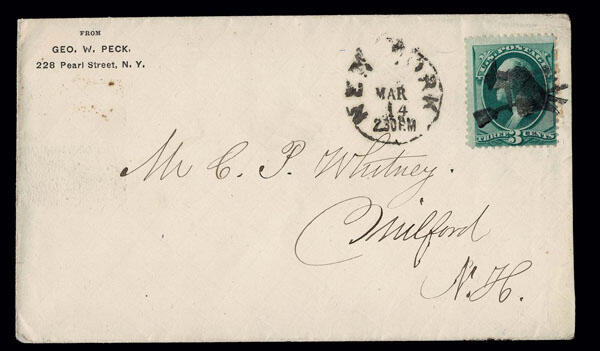 FROM
GEO. W. PECK,
228 Pearl Street, N. Y.
NEW YORK
MAR
14
2:30 P.M
U.S. POSTAGE
THREE 3 CENTS
Mr C. P. Whitney.
Milford
N.H.